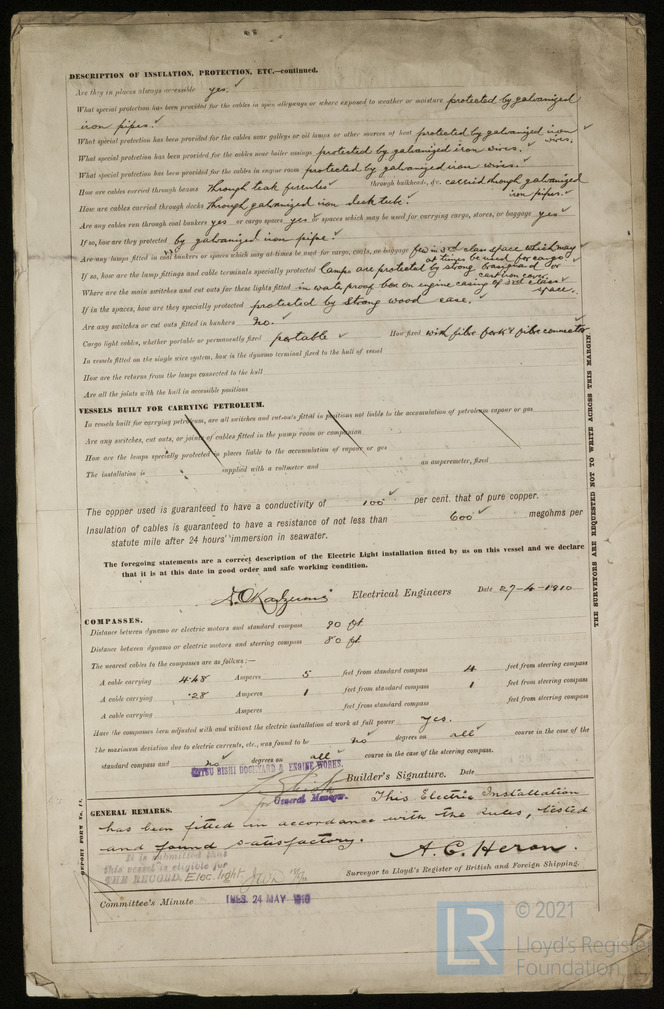 DESCRIPTION OF INSULATION, PROTECTION, ETC.—continued.
Are they in places always accessible yes.
What special protection has been provided for the cables in open alleyways or where exposed to weather or moisture protected by galvanized
iron pipes.
What special protection has been provided for the cables near galleys or oil lamps or other sources of heat protected by galvanized iron wires.
What special protection has been provided for the cables near boiler casings protected by galvanized iron wires.
What special protection has been provided for the cables in engine room protected by galvanized iron wires.
How are cables carried through beams Through teak ferrules through bulkheads, &c. carried through galvanized iron pipes.
How are cables carried through decks Through galvanized iron deck tube.
Are any cables run through coal bunkers yes or cargo spaces yes or spaces which may be used for carrying cargo, stores, or baggage yes
If so, how are they protected by galvanized iron pipe.
Are any lamps fitted in coal bunkers or spaces which may at times be used for cargo, coals, or baggage few in 3rd class space which may at times be used for cargo
If so, how are the lamp fittings and cable terminals specially protected Lamps are protected by strong guard or cast iron cover
Where are the main switches and cut outs for these lights fitted in water proof box on engine casing of 3rd class space.
If in the spaces, how are they specially protected protected by strong wood case.
Are any switches or cut outs fitted in bunkers No.
Cargo light cables, whether portable or permanently fixed portable How fixed with fibre fork & fibre connector
In vessels fitted on the single wire system, how is the dynamo terminal fixed to the hull of vessel
How are the returns from the lamps connected to the hull
Are all the joints with the hull in accessible positions
VESSELS BUILT FOR CARRYING PETROLEUM.
In vessels built for carrying petroleum, are all switches and cut-outs fitted in positions not liable to the accumulation of petroleum vapour or gas
Are any switches, cut outs, or joints of cables fitted in the pump room or companion
How are the lamps specially protected in places liable to the accumulation of vapour or gas
The installation is supplied with a voltmeter and an amperemeter, fixed
The copper used is guaranteed to have a conductivity of 100 per cent. that of pure copper.
Insulation of cables is guaranteed to have a resistance of not less than 600 megohms per
statute mile after 24 hours' immersion in seawater.
The foregoing statements are a correct description of the Electric Light installation fitted by us on this vessel and we declare
that it is at this date in good order and safe working condition.
Electrical Engineers Date 27-4-1910
COMPASSES.
Distance between dynamo or electric motors and standard compass 90 fet
Distance between dynamo or electric motors and steering compass 80 fet
The nearest cables to the compasses are as follows:—
A cable carrying 4.48 Amperes 5 feet from standard compass 4 feet from steering compass
A cable carrying .28 Amperes 1 feet from standard compass 1 feet from steering compass
A cable carrying Amperes feet from standard compass feet from steering compass
Have the compasses been adjusted with and without the electric installation at work at full power Yes.
The maximum deviation due to electric currents, etc., was found to be no degrees on all course in the case of the
standard compass and no degrees on all course in the case of the steering compass.
MITSU BISHI DOCKYARD & ENGINE WORKS.
Builder's Signature. Date
for General Manager.
GENERAL REMARKS. This Electric Installation
has been fitted in accordance with the rules, tested
and found satisfactory.
A. C. Heron.
Surveyor to Lloyd's Register of British and Foreign Shipping.
It is submitted that
this vessel is eligible for
THE RECORD. Elec. light
Committee's Minute TUES. 24 MAY 1910
THE SURVEYORS ARE REQUESTED NOT TO WRITE ACROSS THIS MARGIN
LR
© 2021
Lloyd's Register
Foundation